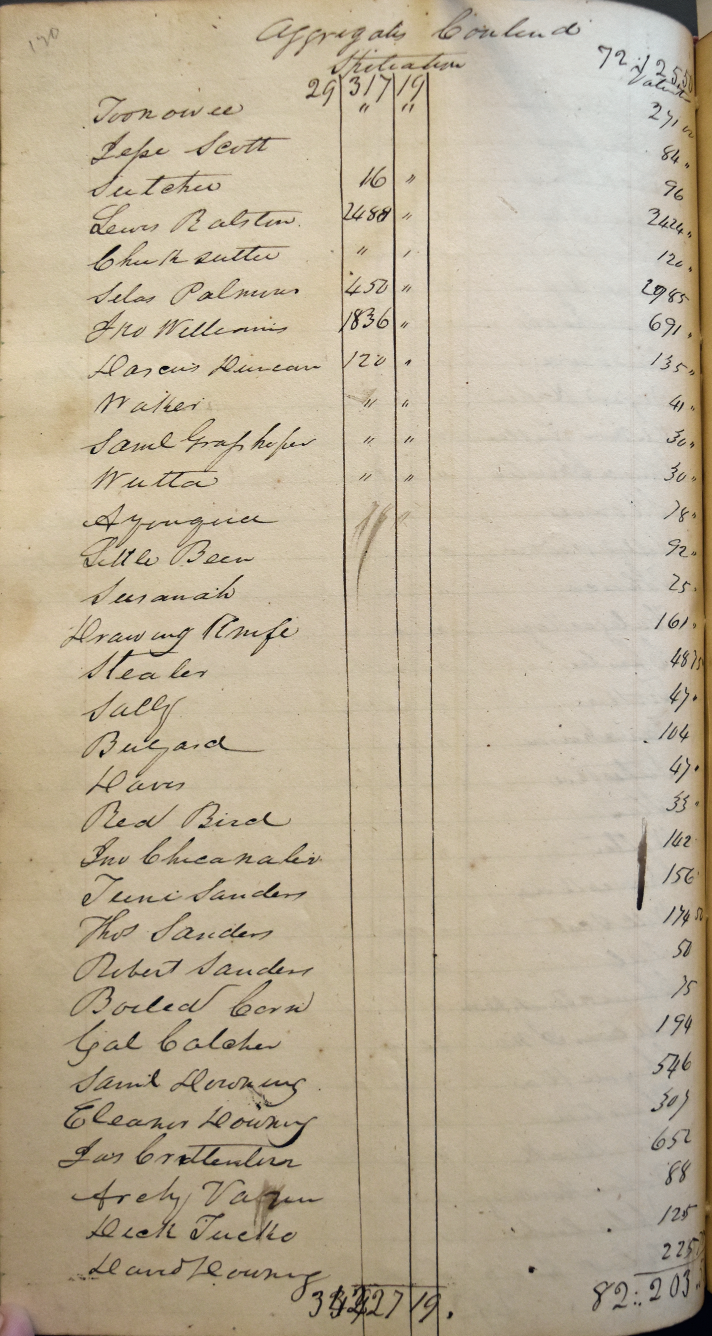 130
Aggregate Contind
Spoliation
72:125.50
Valuat
29 317 19
Toonowee " " 271
Jesse Scott 84 "
Sutcher 16 " 96
Lewis Ralston 2488 " 2424 "
Chucksuttee " " 120 "
Silas Palmour 450 " 2985
Jno Williams 1836 " 691 "
Darcus Duncan 120 " 135 "
Walker " " 41 "
Saml Grasshoper " " 30 "
Wutta " " 30 "
78 "
Little Bean 92 "
Susanah 25 "
Drawing Knife 161 "
Stealer 48 75
Sally 47 "
104
Davis 47 "
Red Bird 33 "
Jno 162
Sanders 156
Thos Sanders 174 50
Robert Sanders 50
Boiled Corn 75
Gal Catcher 194
Saml Downing 546
Eleanor Downing 307
Jas Crittenden 652
Archy Vann 88
Dick Tucko 125
David Downing 225
27 19.
82:203